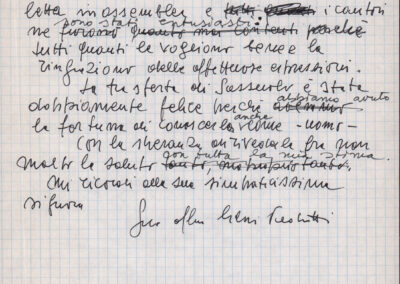 letta in assemblea e tutti i cantori
sono stati entusiasti.
ne furono quanto mai contenti perché
tutti quanti le vogliono bene e la
ringraziano delle affettuose espressioni.
La trasferta di Sassuolo è stata
doppiamente felice perché abbiamo avuto
la fortuna di conoscerla anche come - uomo -
Con la speranza di rivederla fra non
molto la saluto con tutta la mia stima.
Mi ricordi alla sua simpaticissima
signora
Suo